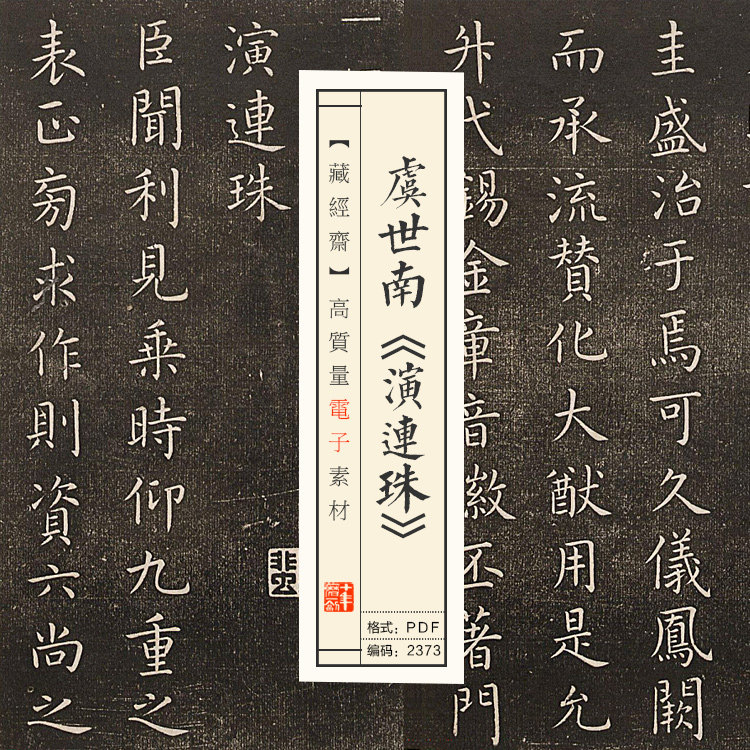 圭盛治于焉可久儀鳳闕
而承流贊化大猷用是允
升代錫金章音徽丕著門
虞世南《演連珠》
【藏經齋】高質量電子素材
格式：PDF
编码：2373
演連珠
臣聞利見乘時仰九重之
表正旁求作則資六尚之